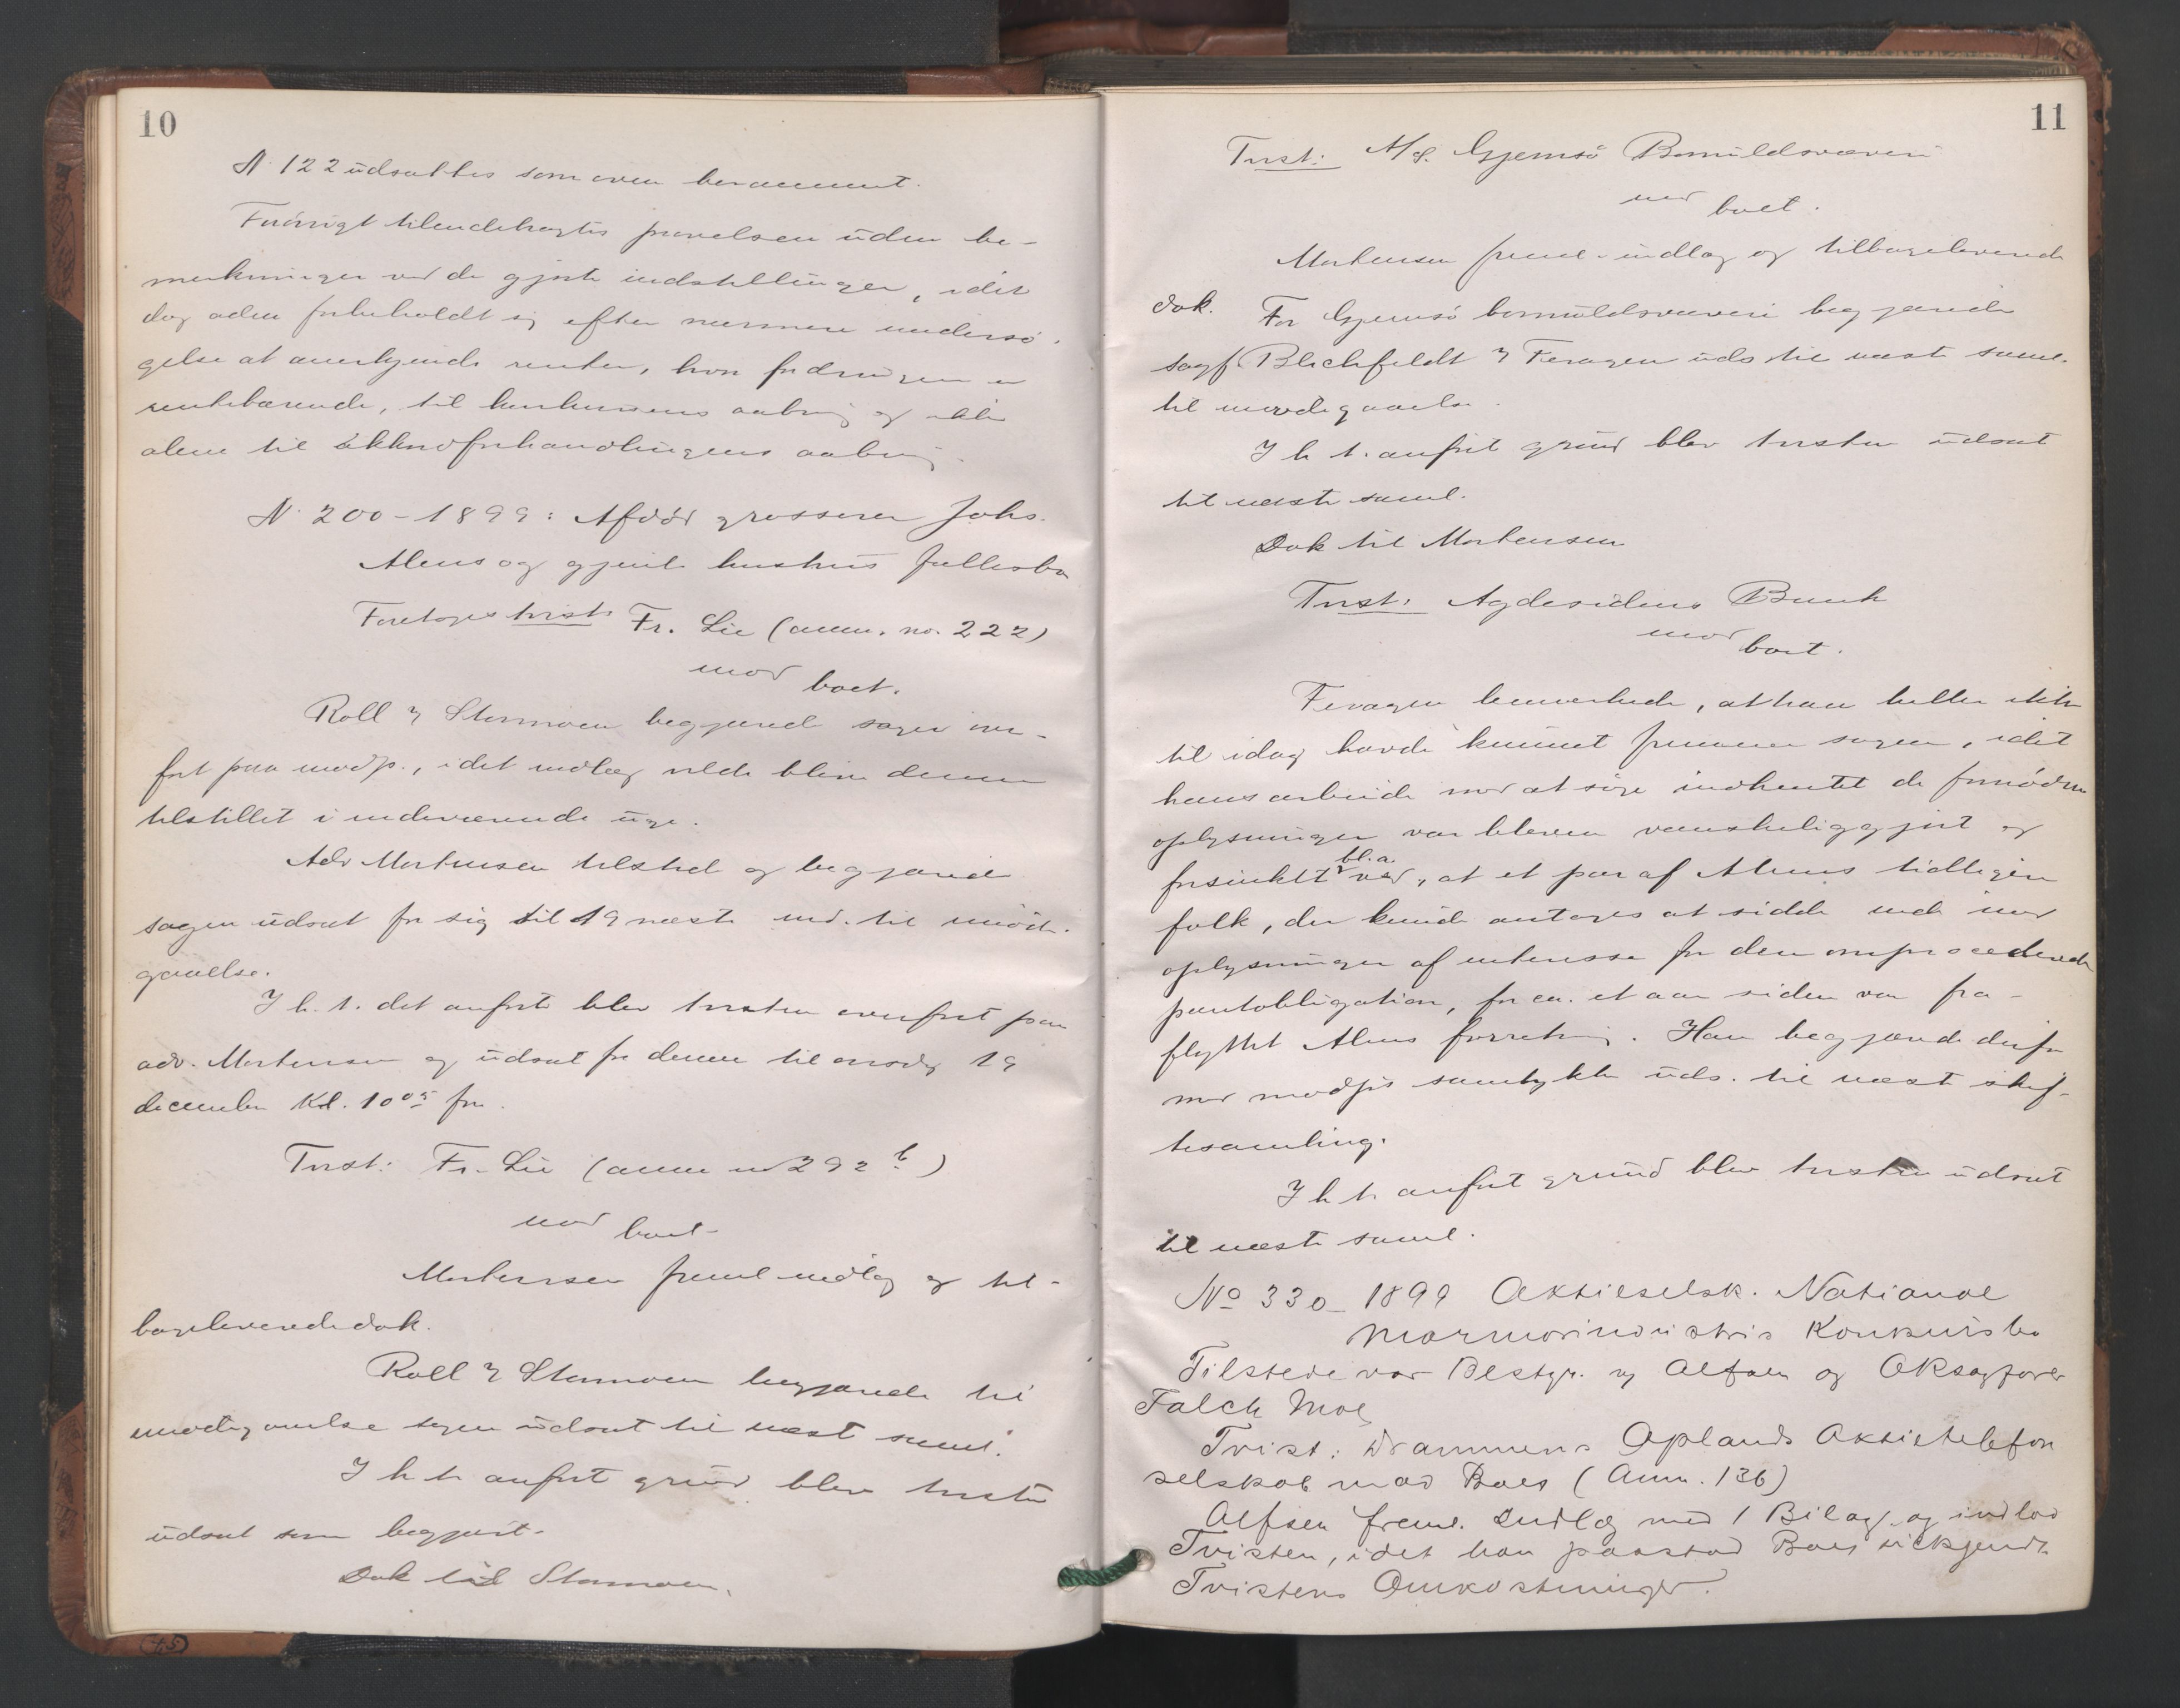 10
N. 122 udsattes som oven berammet.
Forövrigt tilendebragtes prøvelsen uden be-
merkninger ved de gjorte indstillinger, idet
dog forbeholdt sig efter nærmere undersö-
gelse at anerkjende renter, hvor fordringen er
rentebærende, til konkursens aabning og ikke
alene til akkordforhandlingens aabning.
N. 200 - 1899: Afdöd grosserer Johs.
Alens og gjenl. hustrus fællesbo
Foretoges tvist: Fr. Lie (anm. no. 222)
mod boet.
Roll & Stormoen begjærede sagen over-
ført paa modp., idet indlæg vilde blive denne
tilstillet i indeværende uge.
Adv Mortensen tilstede og begjærede
sagen udsat for sig til 19 næste md. til imöde-
gaaelse.
I h. t. det anførte blev tvisten overført paa
adv. Mortensen og udsat for denne til onsdag 19
december Kl. 10 05 fm.
Tvist: Fr. Lie (anm no 292 b)
mod boet.
Mortensen freml indlæg og til-
bageleverede dok.
Roll & Stormoen begjærede til
imødegaaelse sagen udsat til næste saml.
I h t. anført grund blev tvisten
udsat som begjært.
Dok til Stormoen.
11
Tvist: A/S. Gjemsö Bomuldsvæveri
mod boet.
Mortensen freml. indlæg og tilbageleverede
dok. For Gjemsö bomuldsvæveri begjærede
sagf Blichfeldt & Feragen uds til næste saml.
til imødegaaelse.
I h t. anført grund blev tvisten udsat
til næste saml.
Dok til Mortensen
Tvist: Agdesidens Bank
mod boet.
Feragen bemærkede, at han heller ikke
til idag havde kunnet fremme sagen, idet
hans arbeide med at söge indhentet de fornödne
oplysninger var bleven vanskeliggjort og
forsinket bl.a. ved, at et par af Alens tidligere
folk, der kunde antages at sidde inde med
oplysninger af interesse for den omprocederede
pantobligation, for ca. et aar siden var fra-
flyttet Alens forretning. Han begjærede derfor
med modpts samtykke uds. til næste skif-
tesamling.
I h t. anført grund blev tvisten udsat
til næste saml.
No 330 - 1899 Aktieselsk. National
Marmorindustris Konkursbo
Tilstede var Bestyr. Alfsen og ORsagfører
Falch Moe
Tvist: Drammens Oplands Aktietelefon
selskab mod Boet (Anm. 136)
Alfsen freml. Indlæg med 1 Bilag og indlod
Tvisten, idet han paastod Boet tilkjendt
Tvistens Omkostninger.